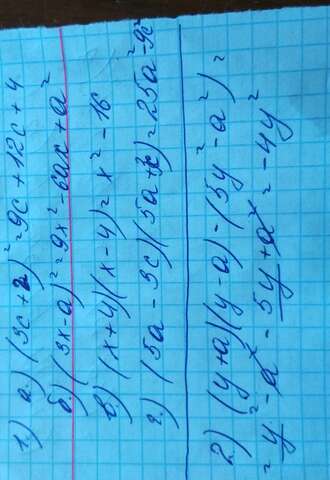 1) а) (3c+2)²=9c+12c+4
б) (3x-a)²=9x²-6ax+a²
в) (x+4)(x-4)=x²-16
г) (5a-3c)(5a+3c)=25a²-9c²
2) (y+a)(y-a)-(5y²-a²)=
=y²-a²-5y+a²=-4y²